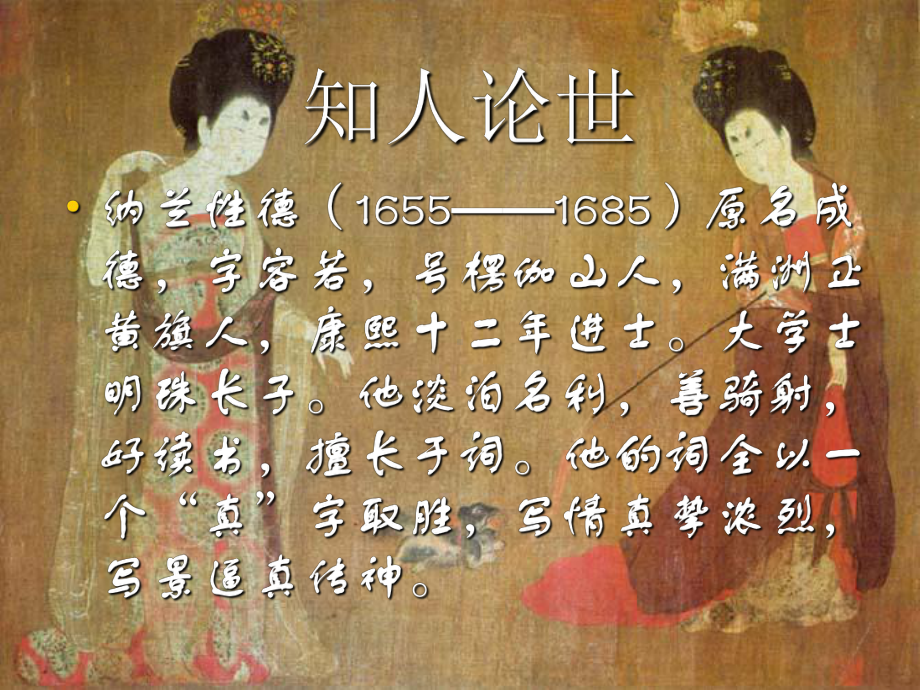 知人论世
• 纳兰性德（1655——1685）原名成
德，字容若，号楞伽山人，满洲正
黄旗人，康熙十二年进士。大学士
明珠长子。他淡泊名利，善骑射，
好读书，擅长于词。他的词全以一
个“真”字取胜，写情真挚浓烈，
写景逼真传神。